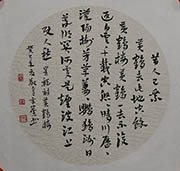 昔人已乘
黄鹤去此地空余
黄鹤楼黄鹤一去不复
返白云千载空悠悠晴川历历
汉阳树芳草萋萋鹦鹉洲日
暮乡关何处是烟波江上
使人愁